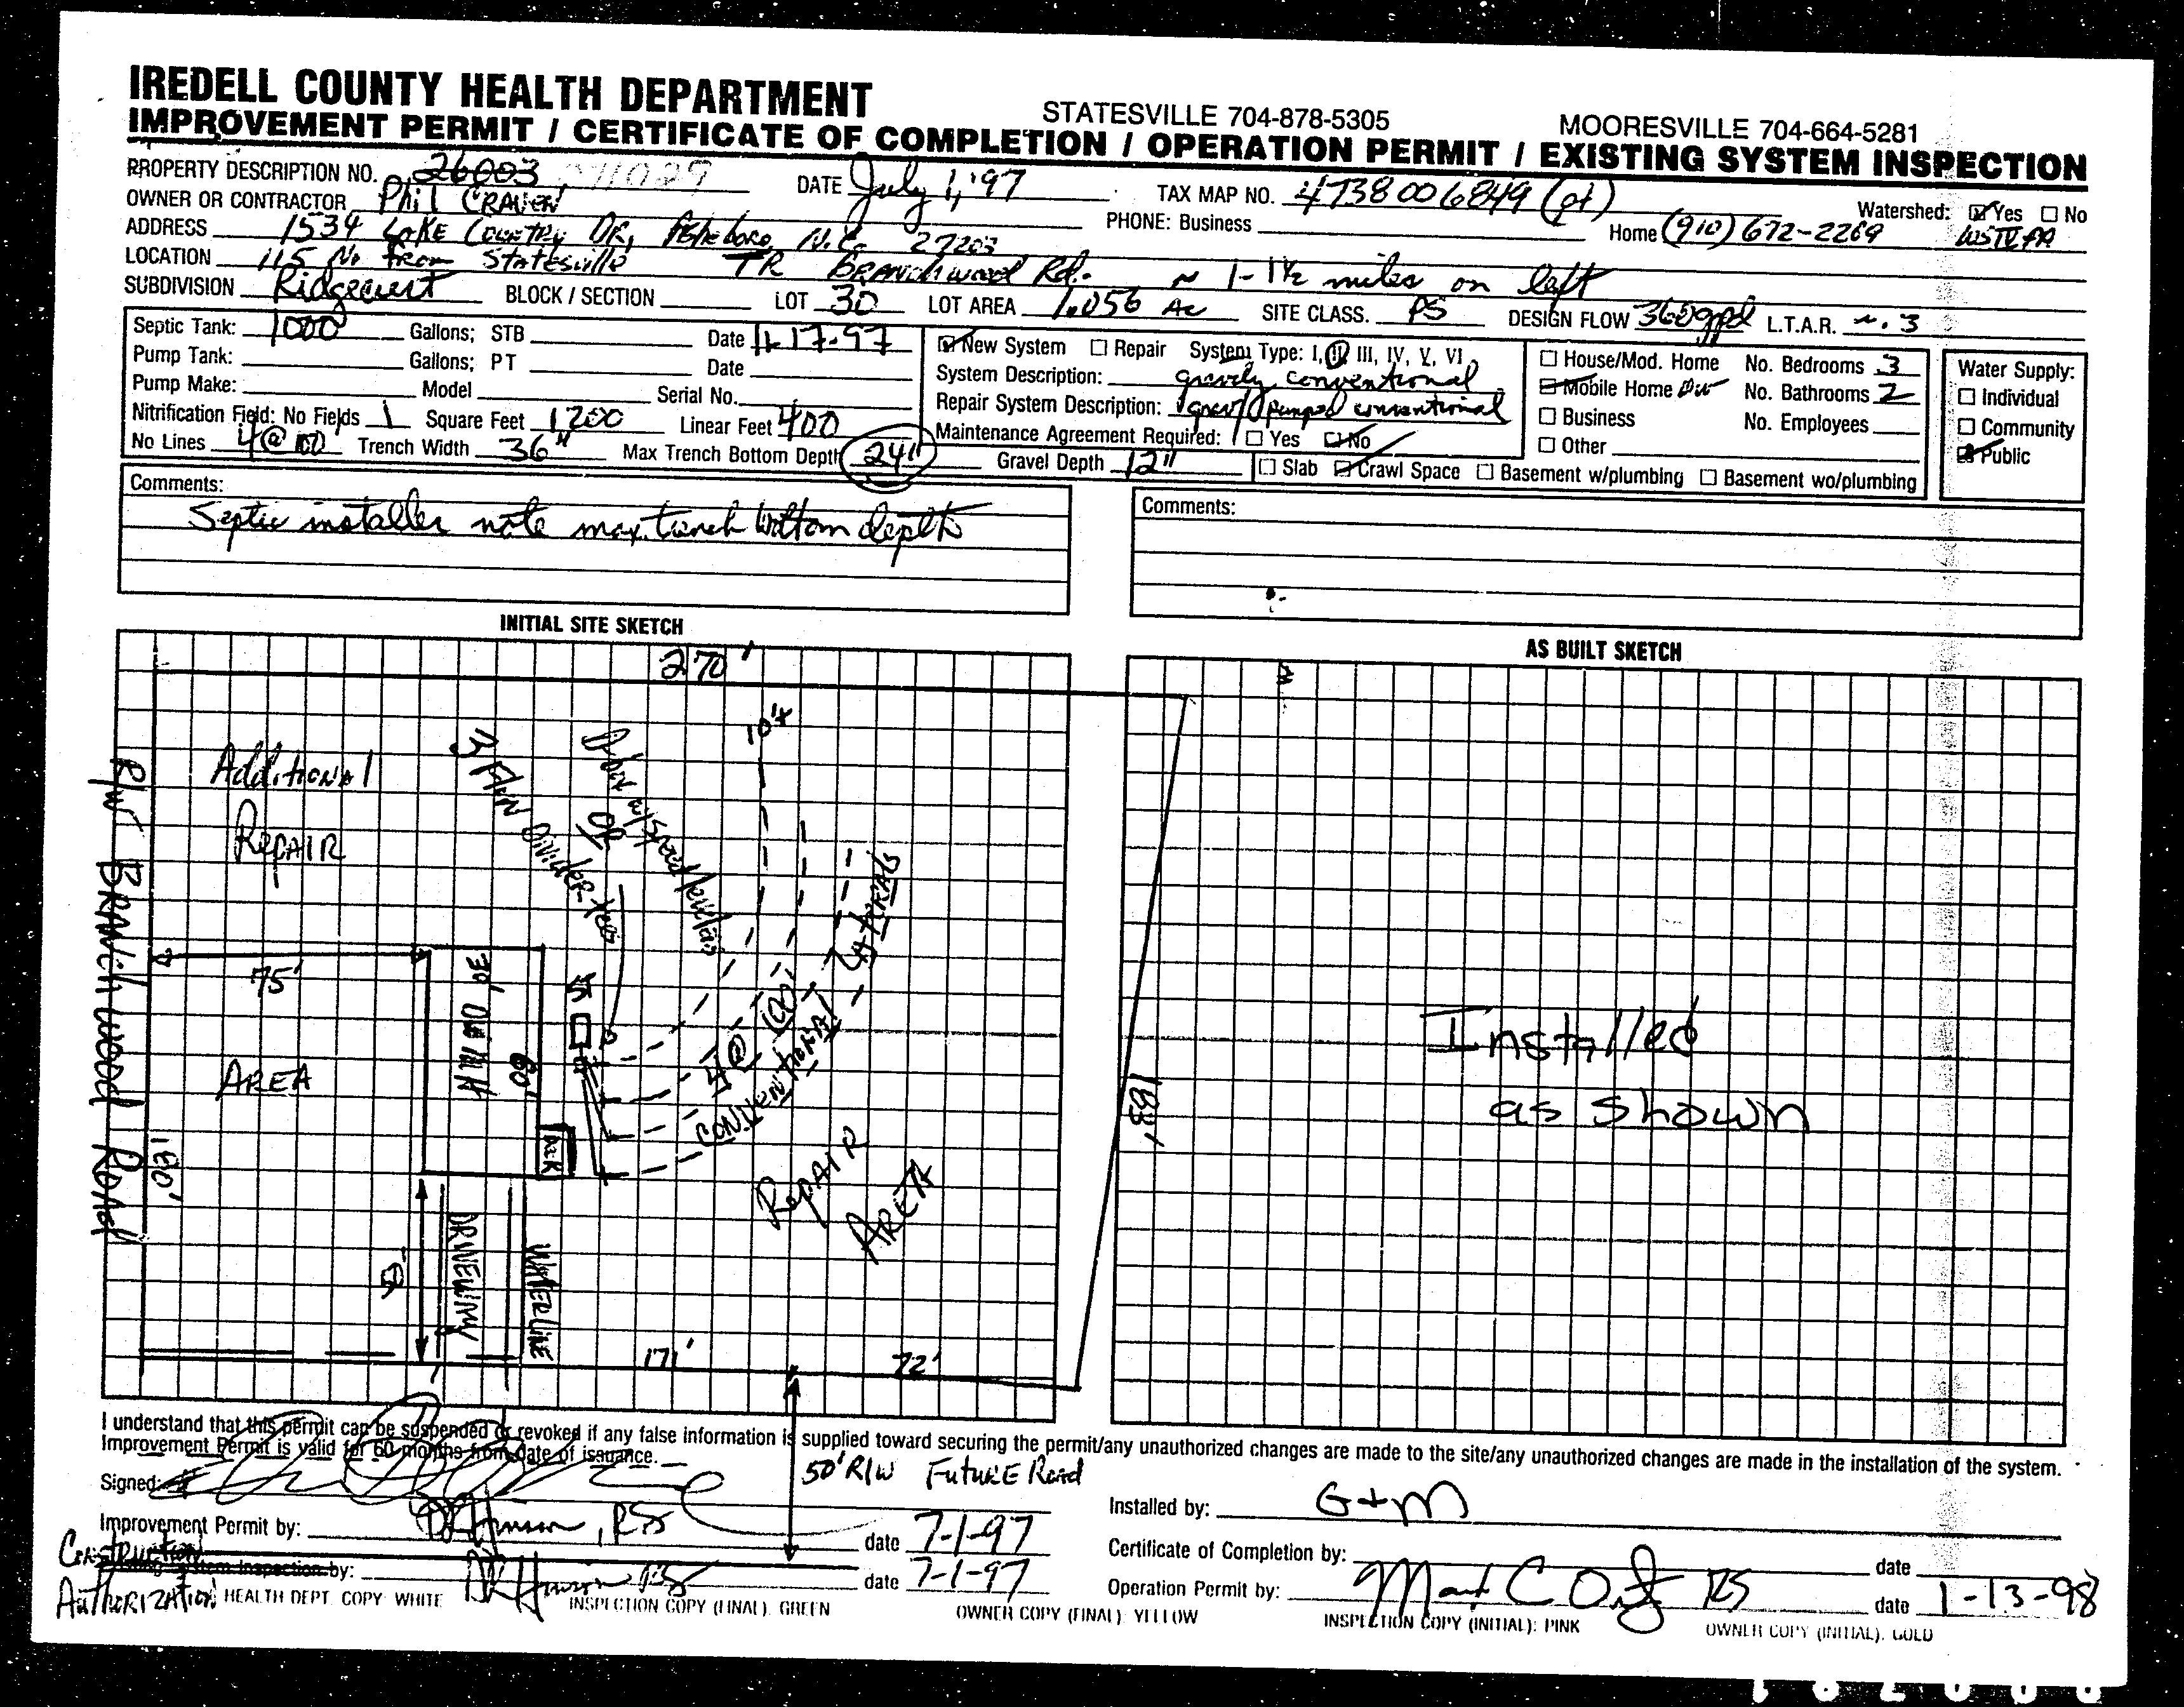 IREDELL COUNTY HEALTH DEPARTMENT
STATESVILLE 704-878-5305 MOORESVILLE 704-664-5281
IMPROVEMENT PERMIT / CERTIFICATE OF COMPLETION / OPERATION PERMIT / EXISTING SYSTEM INSPECTION
PROPERTY DESCRIPTION NO. 26003 DATE July 1, '97 TAX MAP NO. 4738006849 (pt) Watershed: Yes No
OWNER OR CONTRACTOR Phil CRAVEN PHONE: Business Home (910) 672-2269
ADDRESS 1534 Lake Country DR, Asheboro, N.C. 27203
LOCATION 115 No from Statesville TR BRANchwood Rd. ~ 1-1½ miles on left
SUBDIVISION Ridgecrest BLOCK / SECTION LOT 30 LOT AREA 1.056 Ac SITE CLASS. PS DESIGN FLOW 360gpd L.T.A.R. ~.3
Septic Tank: 1000 Gallons; STB Date 11-17-97
Pump Tank: Gallons; PT Date
Pump Make: Model Serial No.
Nitrification Field: No Fields 1 Square Feet 1200 Linear Feet 400
No Lines 4@100' Trench Width 36" Max Trench Bottom Depth 24" Gravel Depth 12"
New System Repair System Type: I, II, III, IV, V, VI
System Description: gravity conventional
Repair System Description: grav/pumped conventional
Maintenance Agreement Required: Yes No
Slab Crawl Space Basement w/plumbing Basement wo/plumbing
House/Mod. Home No. Bedrooms 3
Mobile Home DW No. Bathrooms 2
Business No. Employees
Other
Water Supply:
Individual
Community
Public
Comments:
Septic installer note max. trench bottom depth
Comments:
INITIAL SITE SKETCH
270'
10'+
Additional
Repair
AREA
3 Flow Divider Tees
OR
D-box w/speed levelers
R/W BRANchwood Road
75'
30'
60'
ST
4@100'
CONVENTIONAL
LATERALS
REPAIR
AREA
180'
183'
DRIVEWAY
WATERLINE
171'
72'
50' R/W FUTURE Road
AS BUILT SKETCH
Installed
as shown
I understand that this permit can be suspended or revoked if any false information is supplied toward securing the permit/any unauthorized changes are made to the site/any unauthorized changes are made in the installation of the system.
Improvement Permit is valid for 60 months from date of issuance.
Signed:
Improvement Permit by: RS date 7-1-97
Construction
Existing System Inspection by: RS date 7-1-97
Authorization
Installed by: G+M
Certificate of Completion by: date
Operation Permit by: RS date 1-13-98
HEALTH DEPT. COPY: WHITE INSPECTION COPY (FINAL): GREEN OWNER COPY (FINAL): YELLOW INSPECTION COPY (INITIAL): PINK OWNER COPY (INITIAL): GOLD